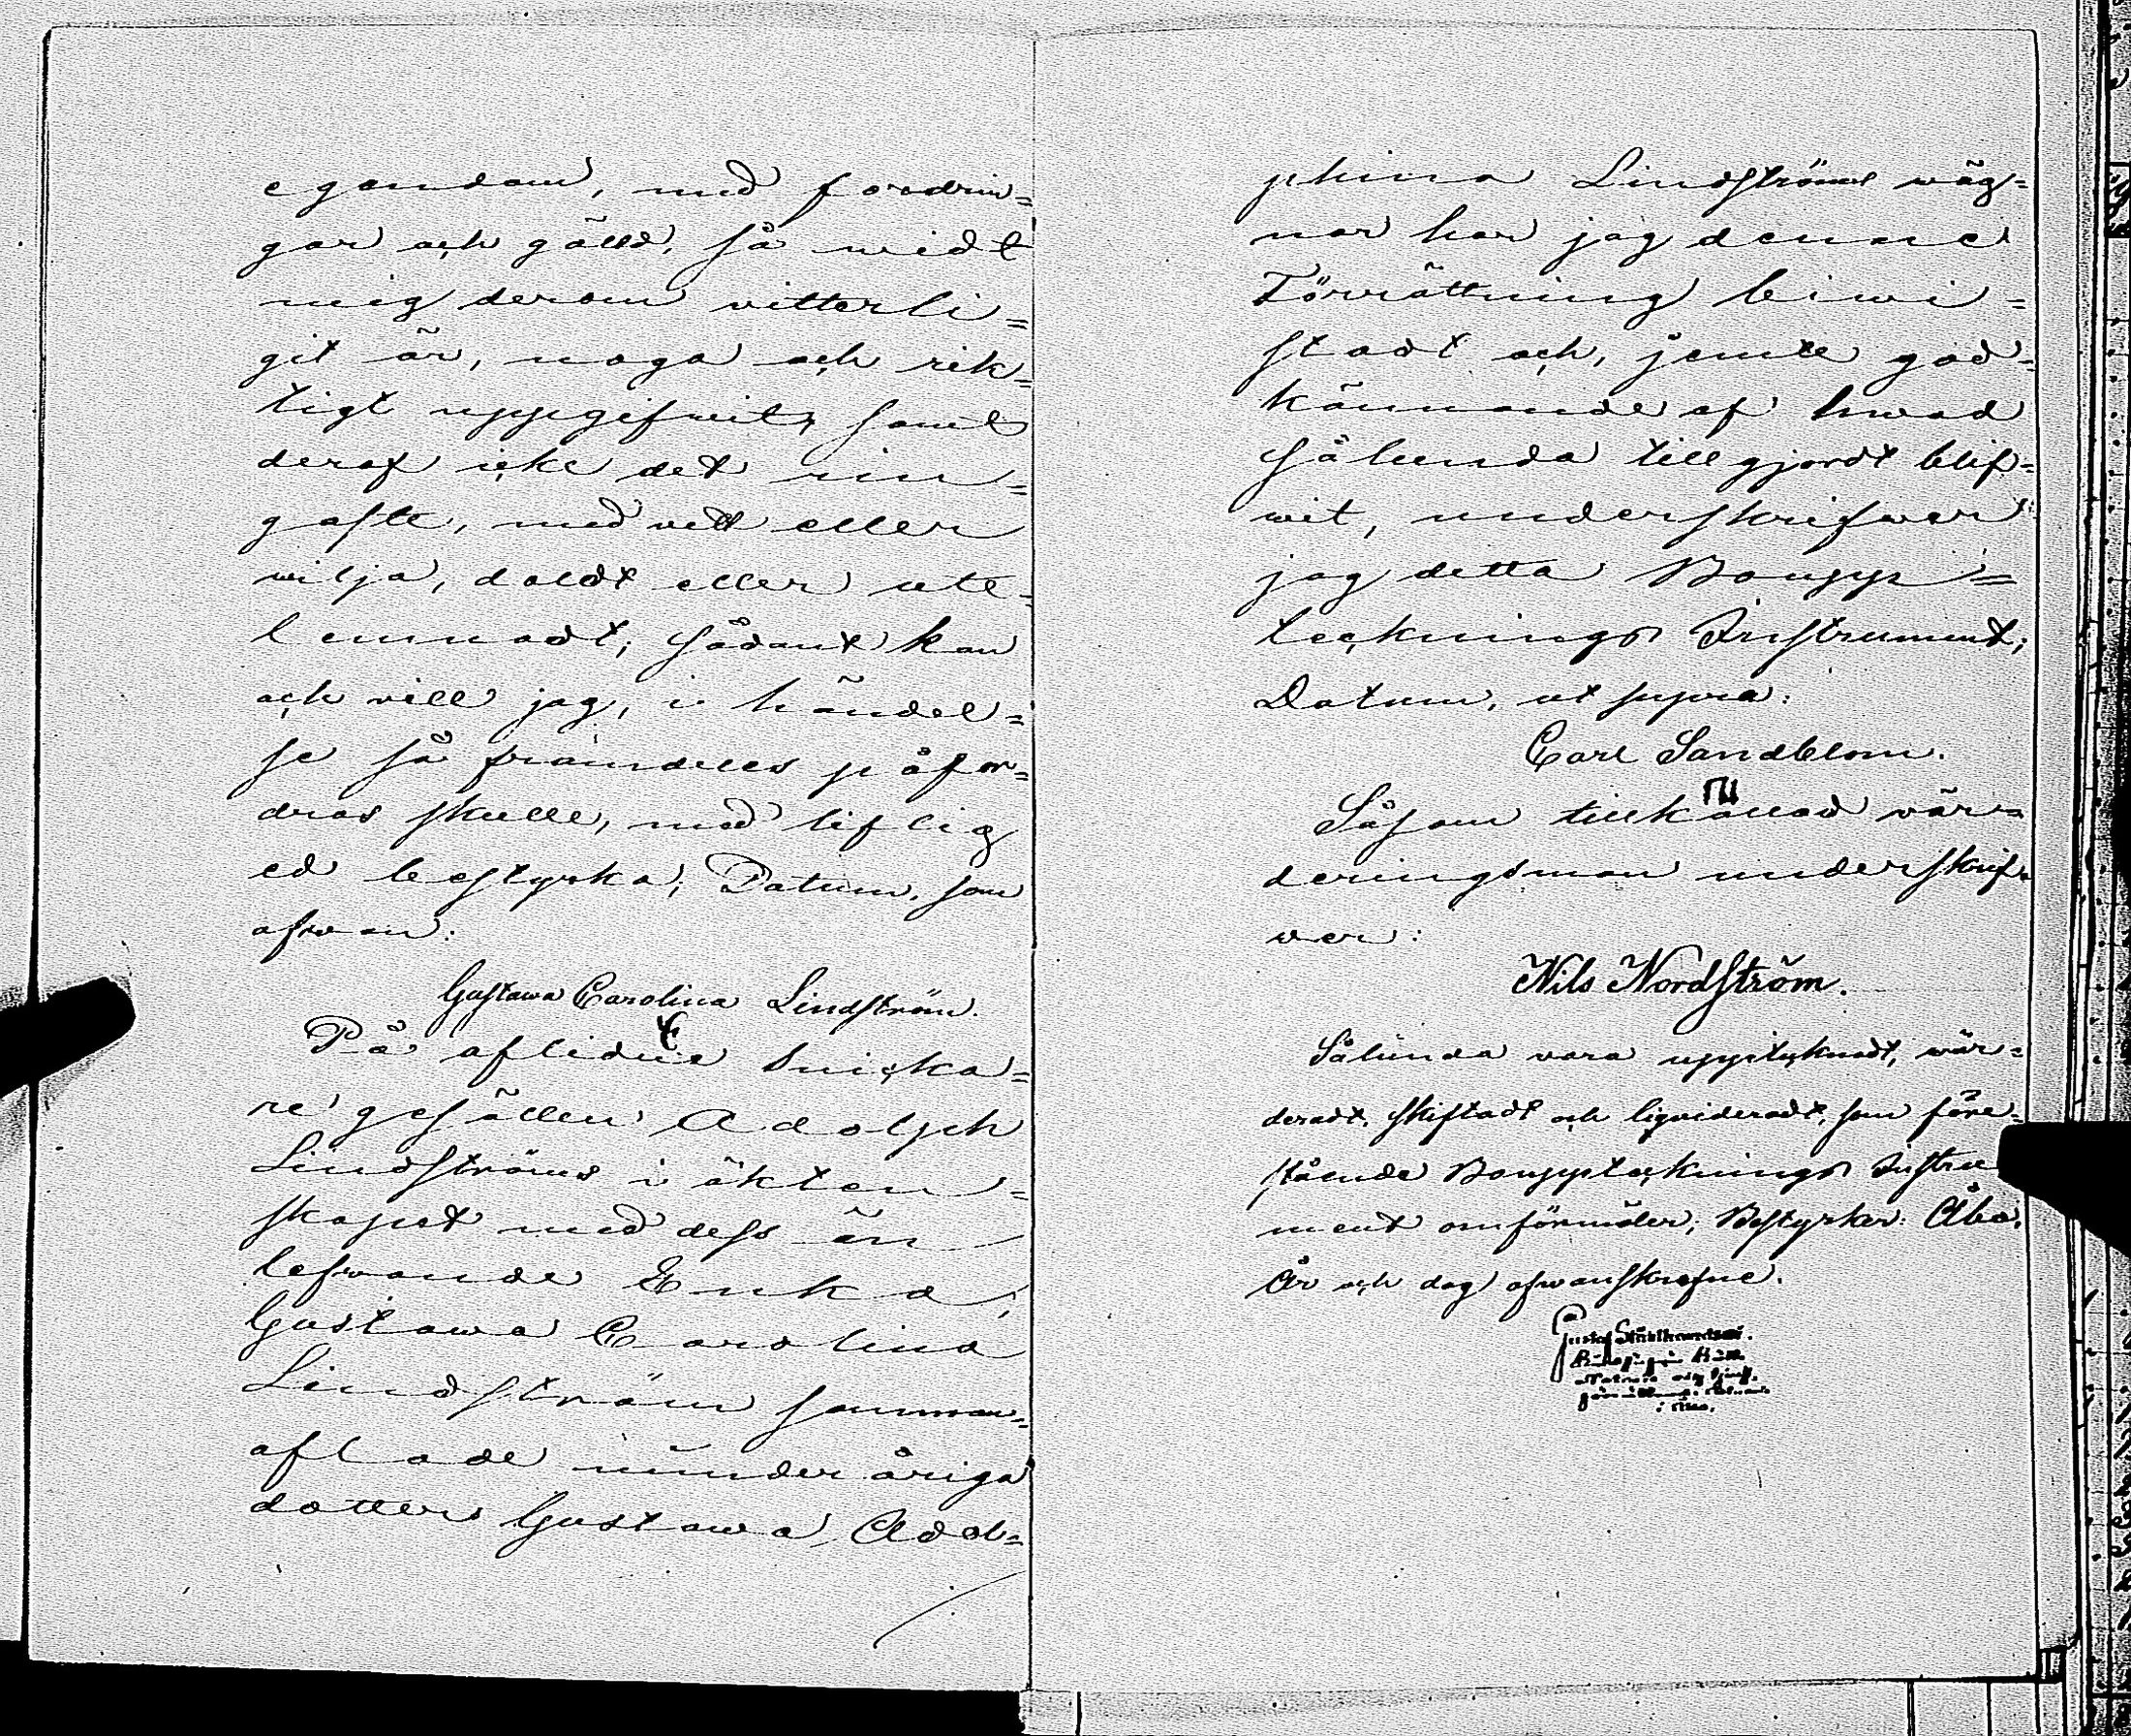 egendom, med fordrin=
gar och gäld, så widt
mig derom vitterli=
git är, noga och rik=
tigt uppgifvit, samt
deraf icke det rin=
gaste, med vett eller
wilja, doldt eller ute=
lemnadt; sådant kan
och vill jag, i händel=
se så framdeles påfor=
dras skulle, med liflig
ed bestyrka; Datum, som
ofwan:
Gustawa Carolina Lindström.
På aflidne Snicka=
re gesällen Adolph
Lindströms i äkten=
skapet med dess än
lefvande Enka,
Gustawa Carolina
Lindström samman=
aflade minderåriga
dotters Gustawa Adol=
phina Lindströms wäg=
nar har jag denne
Förrättning biwi=
stadt och, jemte god=
kännande af hwad
sålunda tillgjordt blif=
wit, underskrifwer
jag detta Boupp=
tecknings Instrument;
Datum, ut supra:
Carl Sandblom.
Såsom tillkallad vär=
deringsman underskrif=
wer:
Nils Nordström.
Sålunda vara upptecknadt, wär=
deradt, skiftadt och liquideradt, som före=
stående Boupptecknings Instru
ment omförmäler; Bestyrker: Åbo,
år och dag ofwanskrefne.
Gustaf